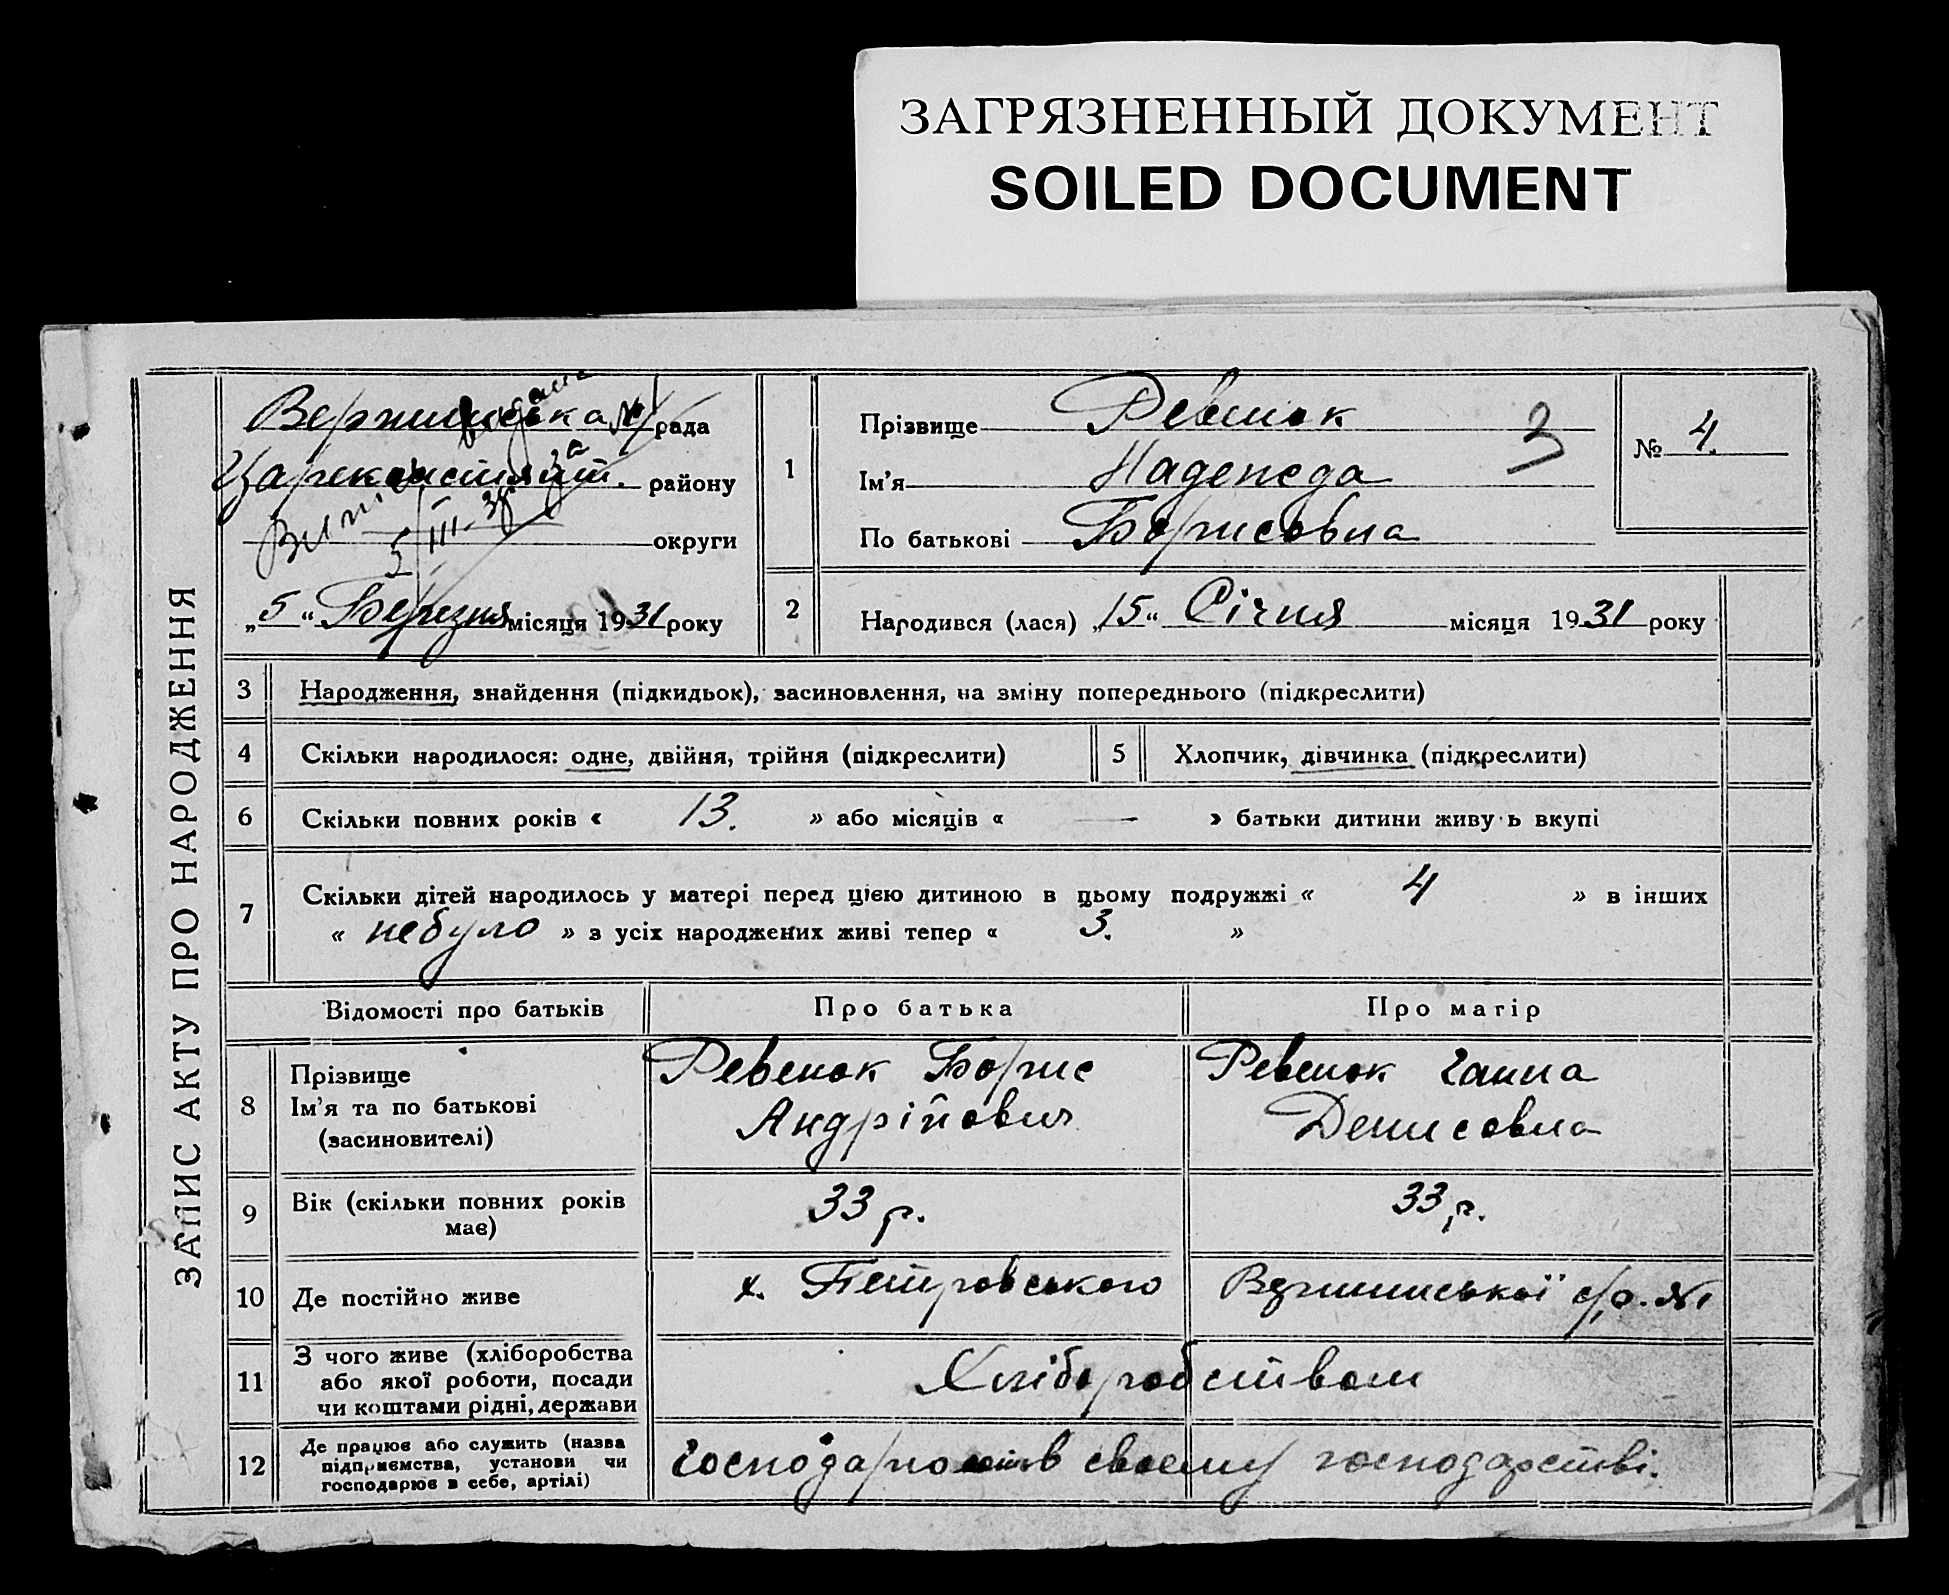 ЗАГРЯЗНЕННЫЙ ДОКУМЕНТ
SOILED DOCUMENT
ЗАПИС АКТУ ПРО НАРОДЖЕННЯ
№1 рада
району
округи
видана
за
5/III-31
„5“ Березня місяця 1931 року
1
Прізвище Ревенок
Ім'я Надежда
По батькові Борисовна
3
№ 4.
2 Народився (лася) „15“ Січня місяця 1931 року
3 Народження, знайдення (підкидьок), засиновлення, на зміну попереднього (підкреслити)
4 Скільки народилося: одне, двійня, трійня (підкреслити) 5 Хлопчик, дівчинка (підкреслити)
6 Скільки повних років « 13. » або місяців « — » батьки дитини живуть вкупі
7 Скільки дітей народилось у матері перед цією дитиною в цьому подружжі « 4 » в інших
« небуло » з усіх народжених живі тепер « 3. »
Відомості про батьків Про батька Про матір
8
Прізвище
Ім'я та по батькові
(засиновителі)
Ревенок Борис
Андрійович
Ревенок Ганна
Денисовна
9 Вік (скільки повних років
має)
33 р. 33 р.
10 Де постійно живе х. Петровського Вершинської с/р. №1
11
З чого живе (хліборобства
або якої роботи, посади
чи коштами рідні, держави
Хліборобством
12
Де працює або служить (назва
підприємства, установи чи
господарює в себе, артілі)
в своєму господарстві.